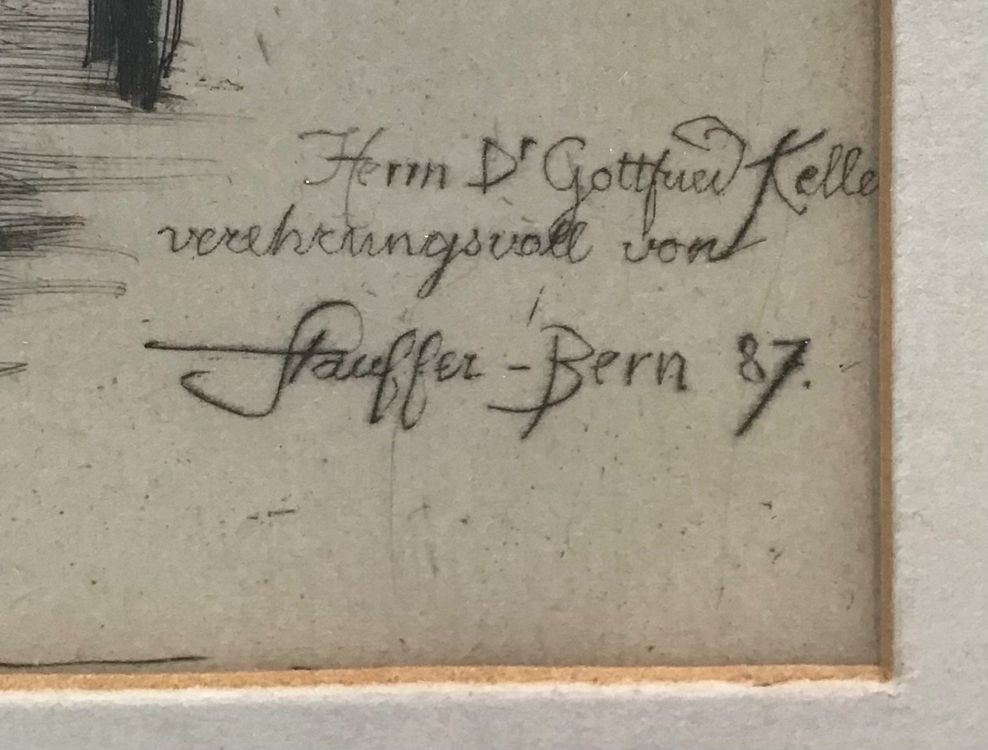 Herrn Dr Gottfried Kelle
verehrungsvoll von
Stauffer-Bern 87.